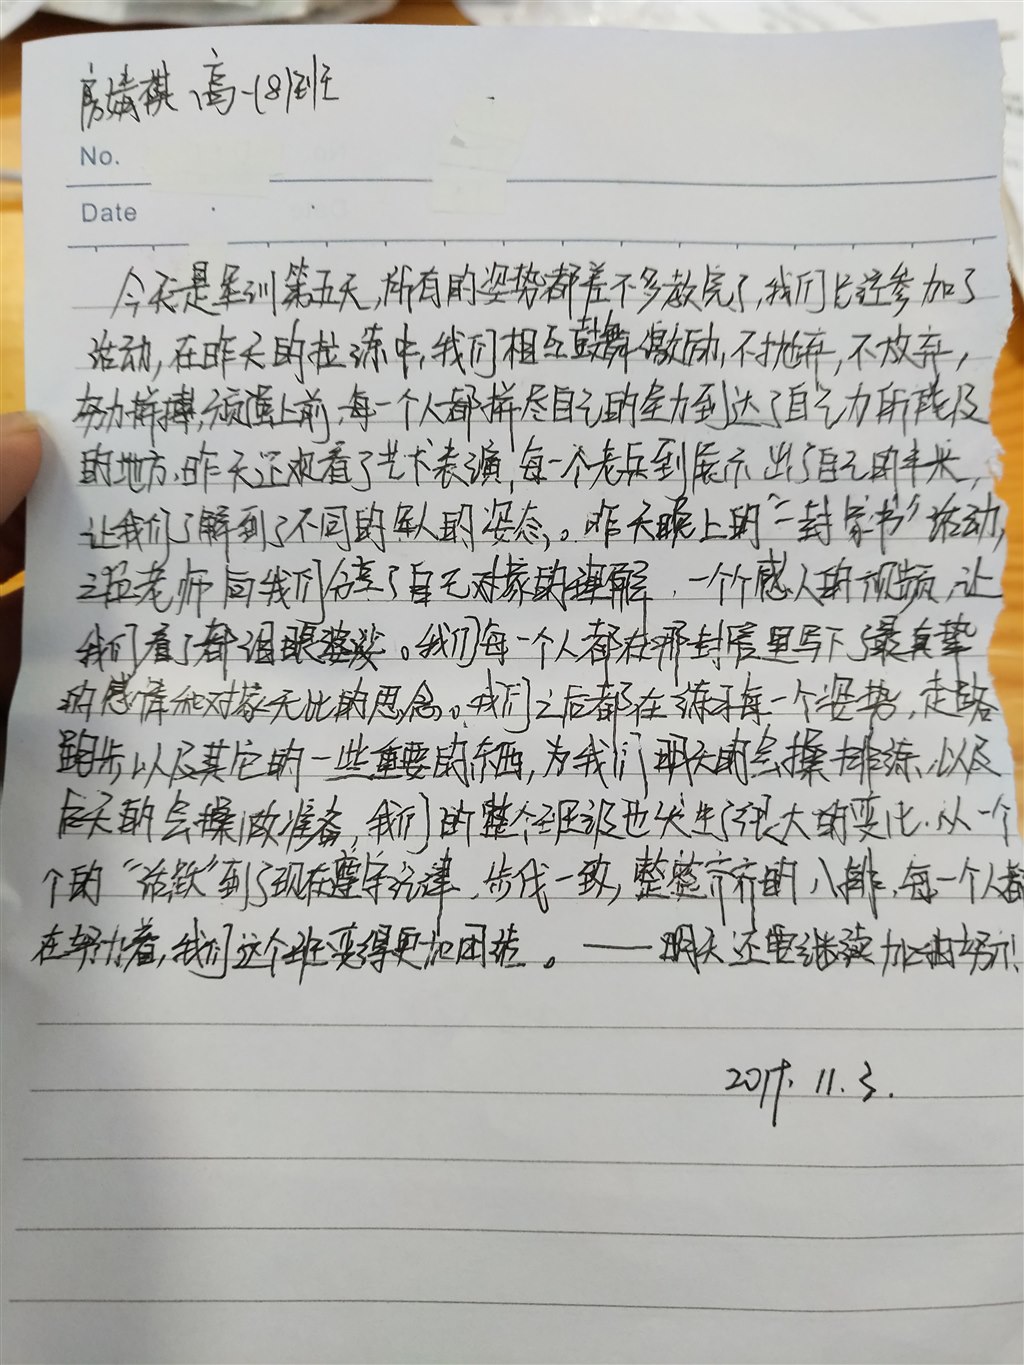 房婧祺 高一(8)班
No.
Date
今天是军训第五天,所有的姿势都差不多教完了,我们已经参加了
活动,在昨天的拉练中,我们相互鼓舞激励,不抛弃,不放弃,
努力拼搏,顽强上前,每一个人都拼尽自己的全力到达了自己力所能及
的地方.昨天还观看了艺术表演,每一个老兵到展示出了自己的丰采,
让我们了解到了不同的军人的姿态,。昨天晚上的“一封家书”活动,
老师向我们分享了自己对家的理解,一个个感人的视频,让
我们看了都泪眼婆娑。我们每一个人都在那封信里写下了最真挚
的感情和对家无比的思念。我们之后都在练习每一个姿势,走路
跑步,以及其它的一些重要的东西,为我们明天的会操排练,以及
后天的会操做准备,我们的整个班级也发生了很大的变化.从一个
个的“活跃”到了现在遵守纪律,步伐一致,整整齐齐的八排,每一个人都
在努力着,我们这个班变得更加团结。——明天还要继续加油努力!
11.3.